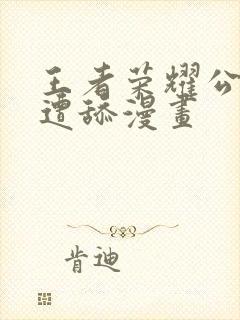 王者荣耀公
遭舔漫畫
肯迪